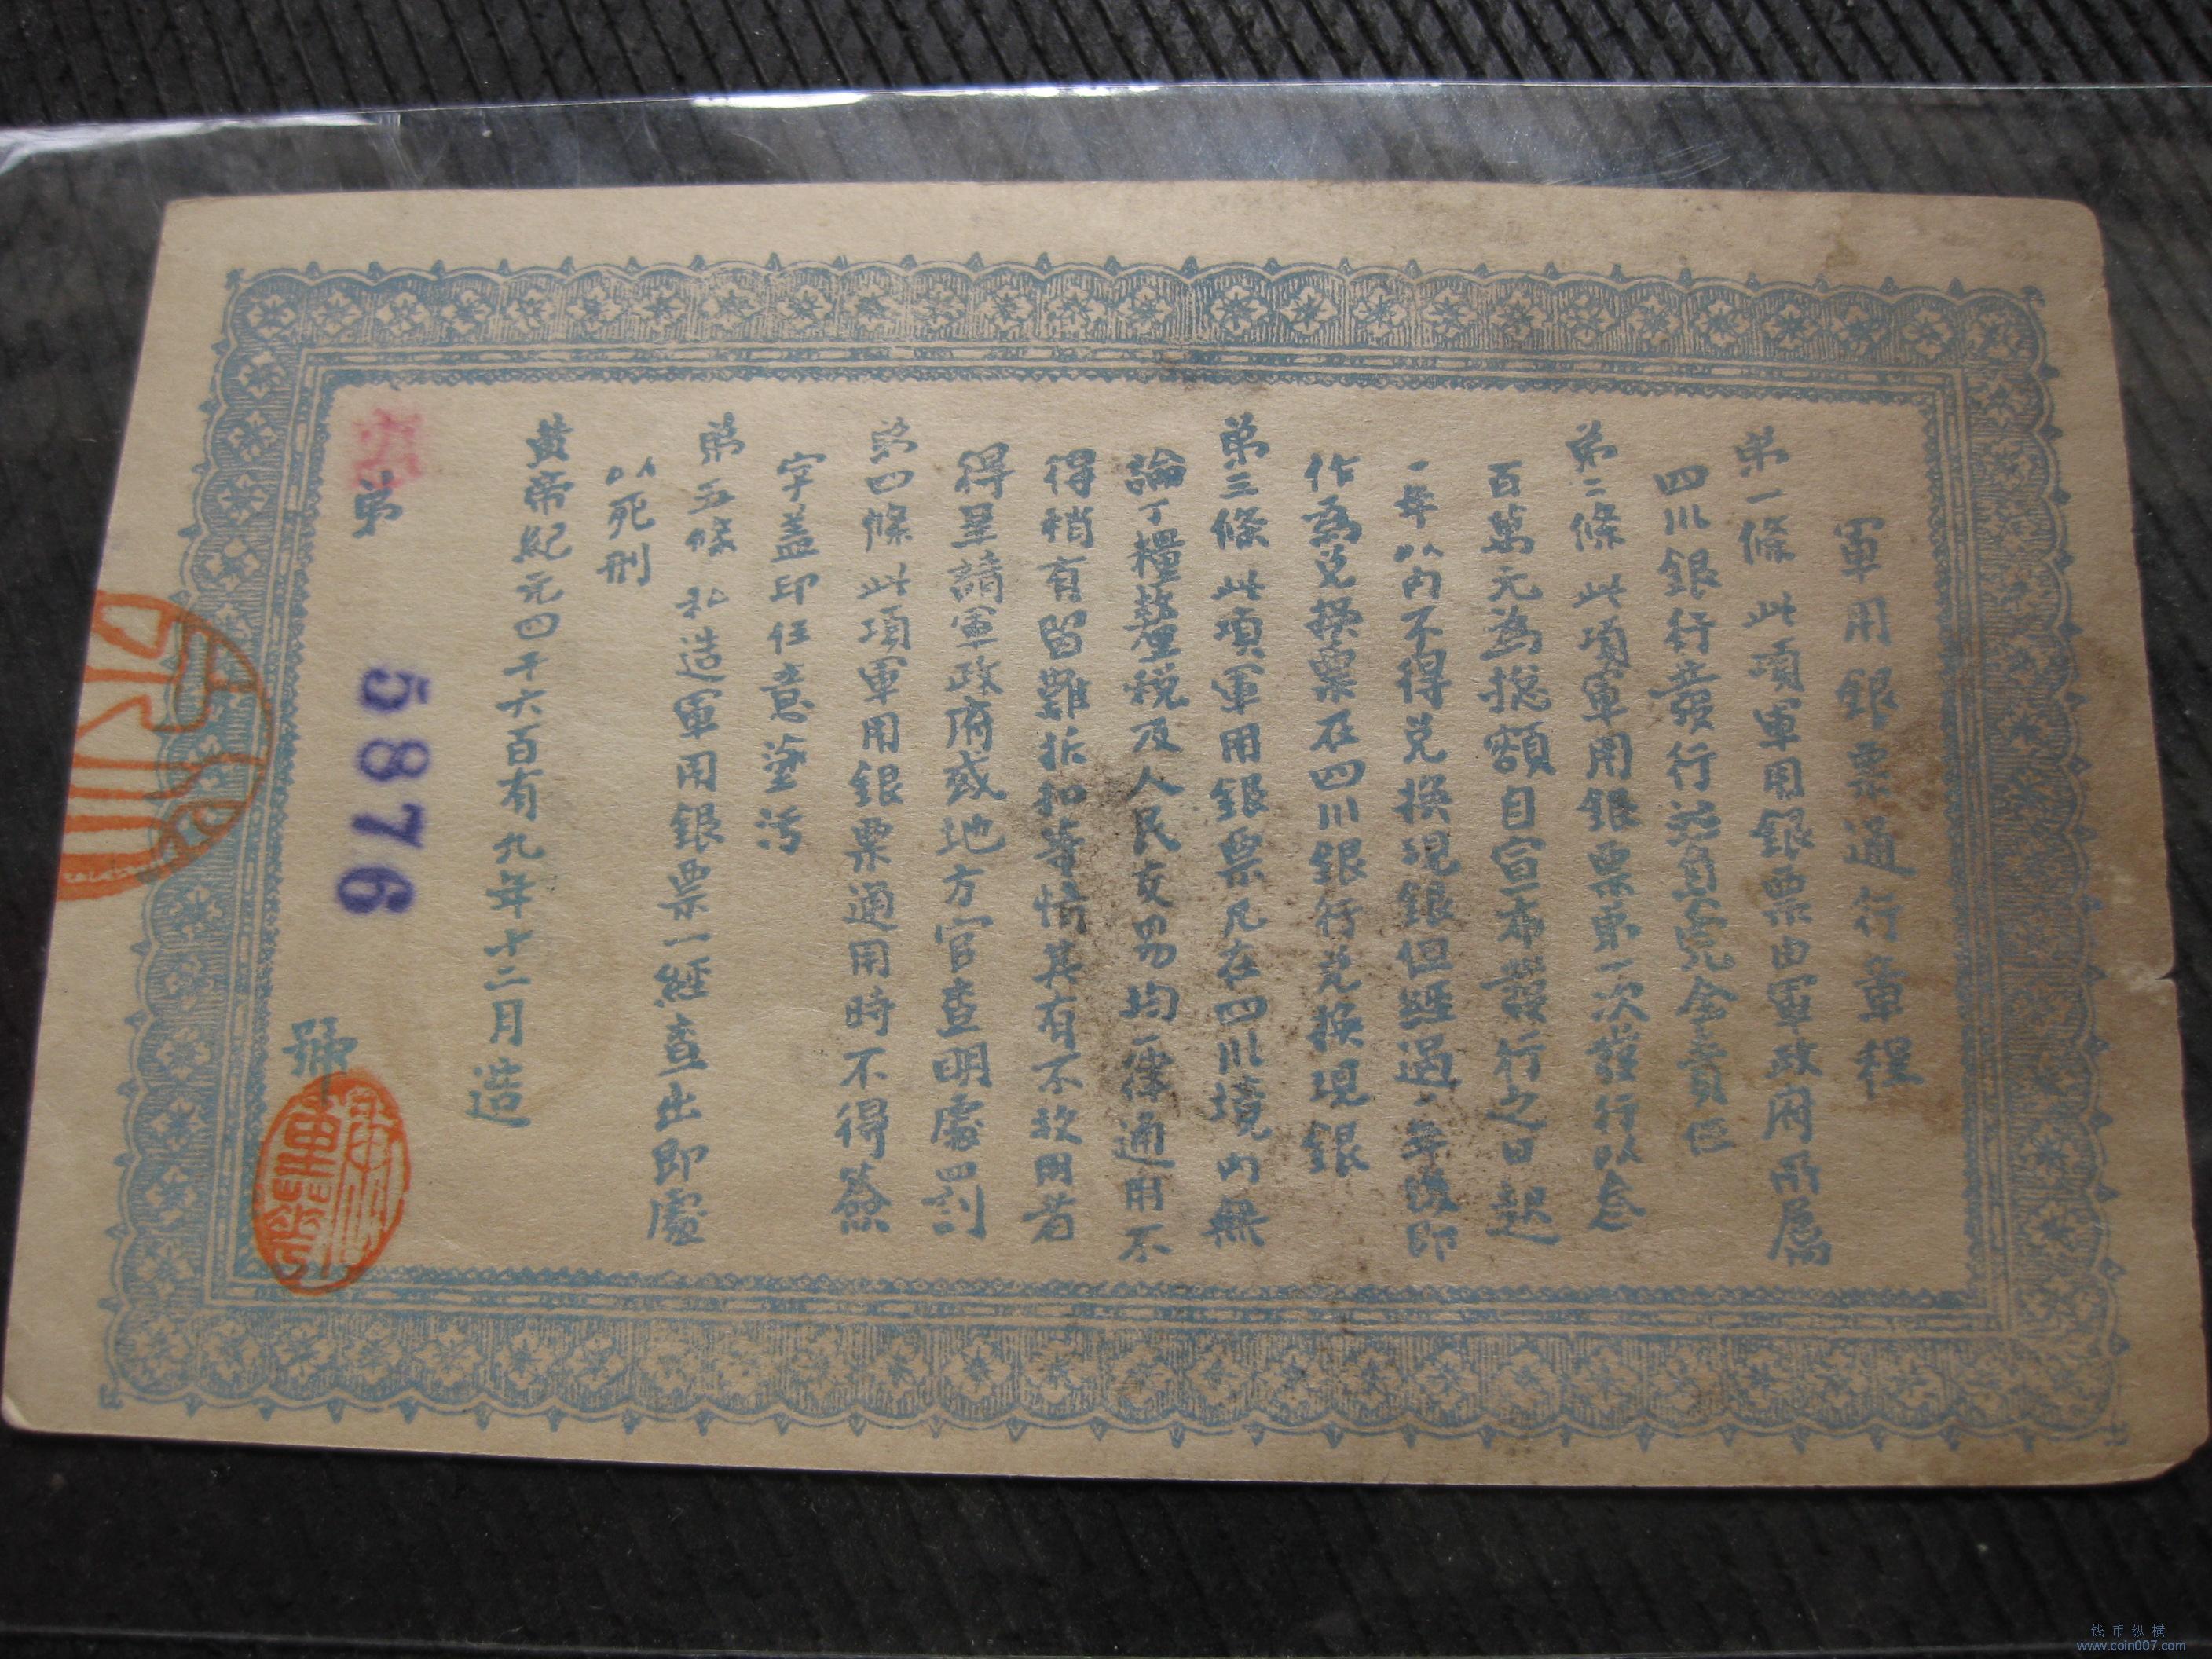 軍用銀票通行章程
第一條 此項軍用銀票由軍政府所屬
四川銀行發行並負完全責任
第二條 此項軍用銀票第一次發行以叁
百萬元為總額自宣布發行之日起
一年以內不得兌換現銀但經過一年後即
作為兌換票在四川銀行兌換現銀
第三條 此項軍用銀票凡在四川境內無
論丁糧釐稅及人民交易均一律通用不
得稍有留難折扣等情其有不放用者
得呈請軍政府或地方官查明處罰
第四條 此項軍用銀票通用時不得簽
字蓋印任意塗污
第五條 私造軍用銀票一經查出即處
以死刑
黃帝紀元四千六百有九年十二月造
第 5876 號
钱币纵横
www.coin007.com